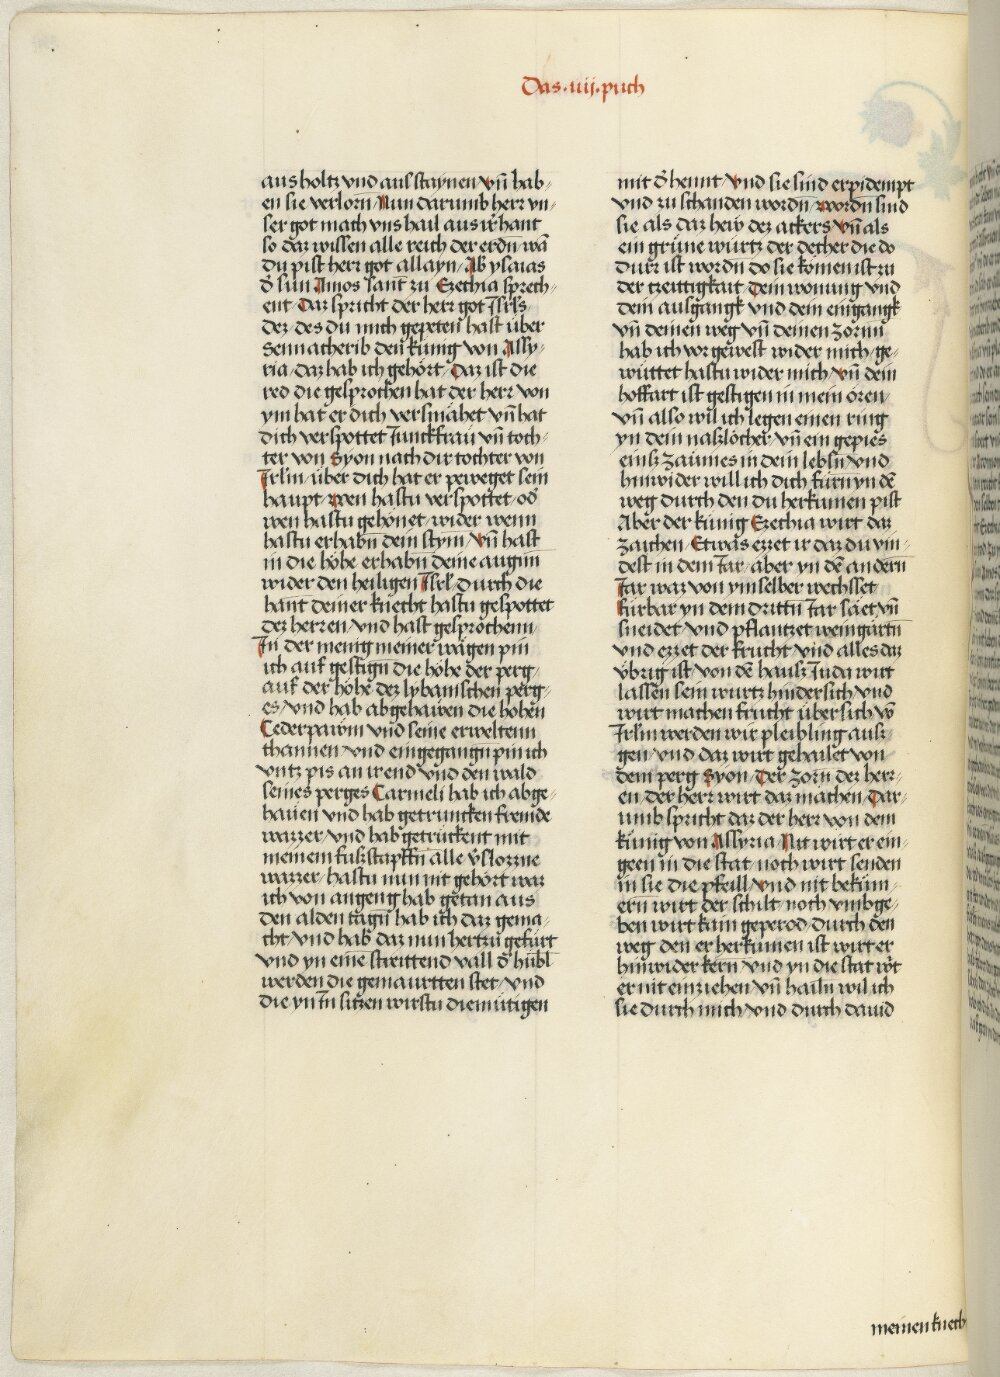 Das ·iiij· puch
aus holtz vnd aus staynen vn̄ hab⸗
en sie verlorn / Nun darumb herr vn⸗
ser got mach vns hail aus ir̄ hant
so daz wissen alle reich der erdn̄ wā
du pist herr got allayn / Ab ysaias
d̄ sun Amos sant zu Ezechia sprech⸗
ent / Daz spricht der herr got Isrl̄s /
dez des du mich gepeten hast über
Sennacherib den künig von Assy⸗
ria / daz hab ich gehört / Daz ist die
red die gesprochen hat der herr von
ym hat er dich versmähet vn̄ hat
dich verspottet Junckfrau vn̄ toch⸗
ter von Syon nach dir tochter von
Irlm̄ / über dich hat er peweget sein
haupt / wen hastu verspottet / od̄
wen hastu gehönet / wider wenn
hastu erhabn̄ dein stym / vn̄ hast
in die höhe erhabn̄ deine augnn̄
wider den heiligen Isrl̄ / durch die
hant deiner knecht hastu gespottet
dez herren / vnd hast gesprochenn
In der menig meiner wägen pin
ich auf gestign̄ die höhe der perg /
auf der höhe dez lybanischen perg⸗
es / vnd hab abgehawen die hohen
Cederpawm vnd seine erweltenn
thannen / vnd eingegangn̄ pin ich
vntz pis an ir end / vnd den wald
seines perges Carmeli hab ich abge⸗
hauen vnd hab getruncken fremde
wazzer / vnd hab getrückent mit
meinem fußstapffn̄ alle v̄slozzne
wazzer / hastu nun nit gehört waz
ich von angeng hab getan aus
den alden tagn̄ hab ich daz gema⸗
cht / vnd hab daz nun hertzu gefürt
vnd yn eine streittend vall d̄ hübl̄
werden die gemaurtten stet / vnd
die yn In sitzen wirstu diemütigen
mit d̄ hennt / vnd sie sind erpidempt
vnd zu schanden wordn̄ / wordn̄ sind
sie als daz hew dez ackers / vn̄ als
ein grüne würtz der decher die do
dürz ist wordn̄ do sie kömen ist zu
der tzeittigkait / Dein wonung vnd
dein ausgangk vnd dein eingangk
vn̄ deinen weg vn̄ deinen zornn
hab ich vor gewest wider mich / ge⸗
wüttet hastu wider mich / vn̄ dein
hoffart ist gestigen in mein ören /
vn̄ also wil ich legen einen ring
yn dein naßlöcher vn̄ ein gepies
einß zaumes in dein lebsn̄ / vnd
hinwider will ich dich fürn yn dē
weg durch den du herkumen pist
Aber der künig Ezechia wirt daz
zaichen / Etwas ezzet ir daz du vin⸗
dest in dem Jar / aber yn dē andern
Jar waz von ym selber wechsset /
fürbar yn dem drittn̄ Jar säet vn̄
sneidet / vnd pflantzet weingartn̄
vnd ezzet der frucht / vnd alles daz
v̈brig ist / von dē hauß Juda wirt
lassen sein wurtz hindersich / vnd
wirt machen frucht übersich / vō
Irlm̄ werden wir pleibling auß⸗
gen / vnd daz wirt gehailet von
dem perg Syon / Der zorn dez herr⸗
en / der herr wirt daz machen / Dar⸗
umb spricht daz der herr von dem
künig von Assyria / Nit wirt er ein⸗
geen in die stat / noch wirt senden
in sie die pfeill / vnd nit beküm⸗
ern wirt der schilt / noch vmbge⸗
ben wirt kain geperod / durch den
weg den er herkumen ist wirt er
hinwider kern / vnd yn die stat wt̄
er nit einziehen vn̄ hailn wil ich
sie durch mich / vnd durch dauid
meinen knech